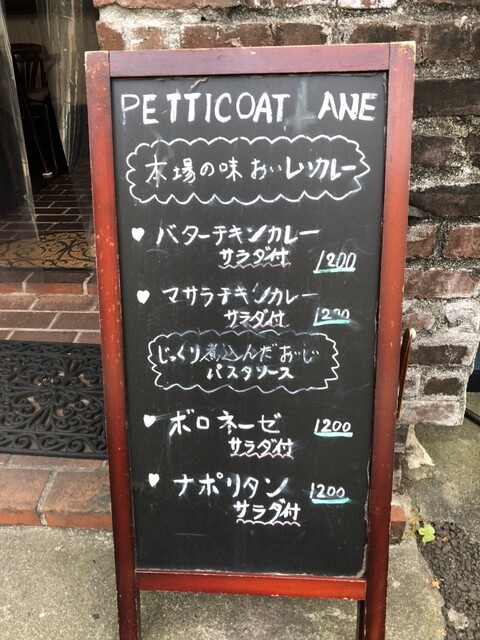 PETTICOAT LANE
本場の味 おいしいカレー
♥ バターチキンカレー
サラダ付 1200
♥ マサラチキンカレー
サラダ付 1200
じっくり煮込んだおいしい
パスタソース
♥ ボロネーゼ 1200
サラダ付
♥ ナポリタン 1200
サラダ付